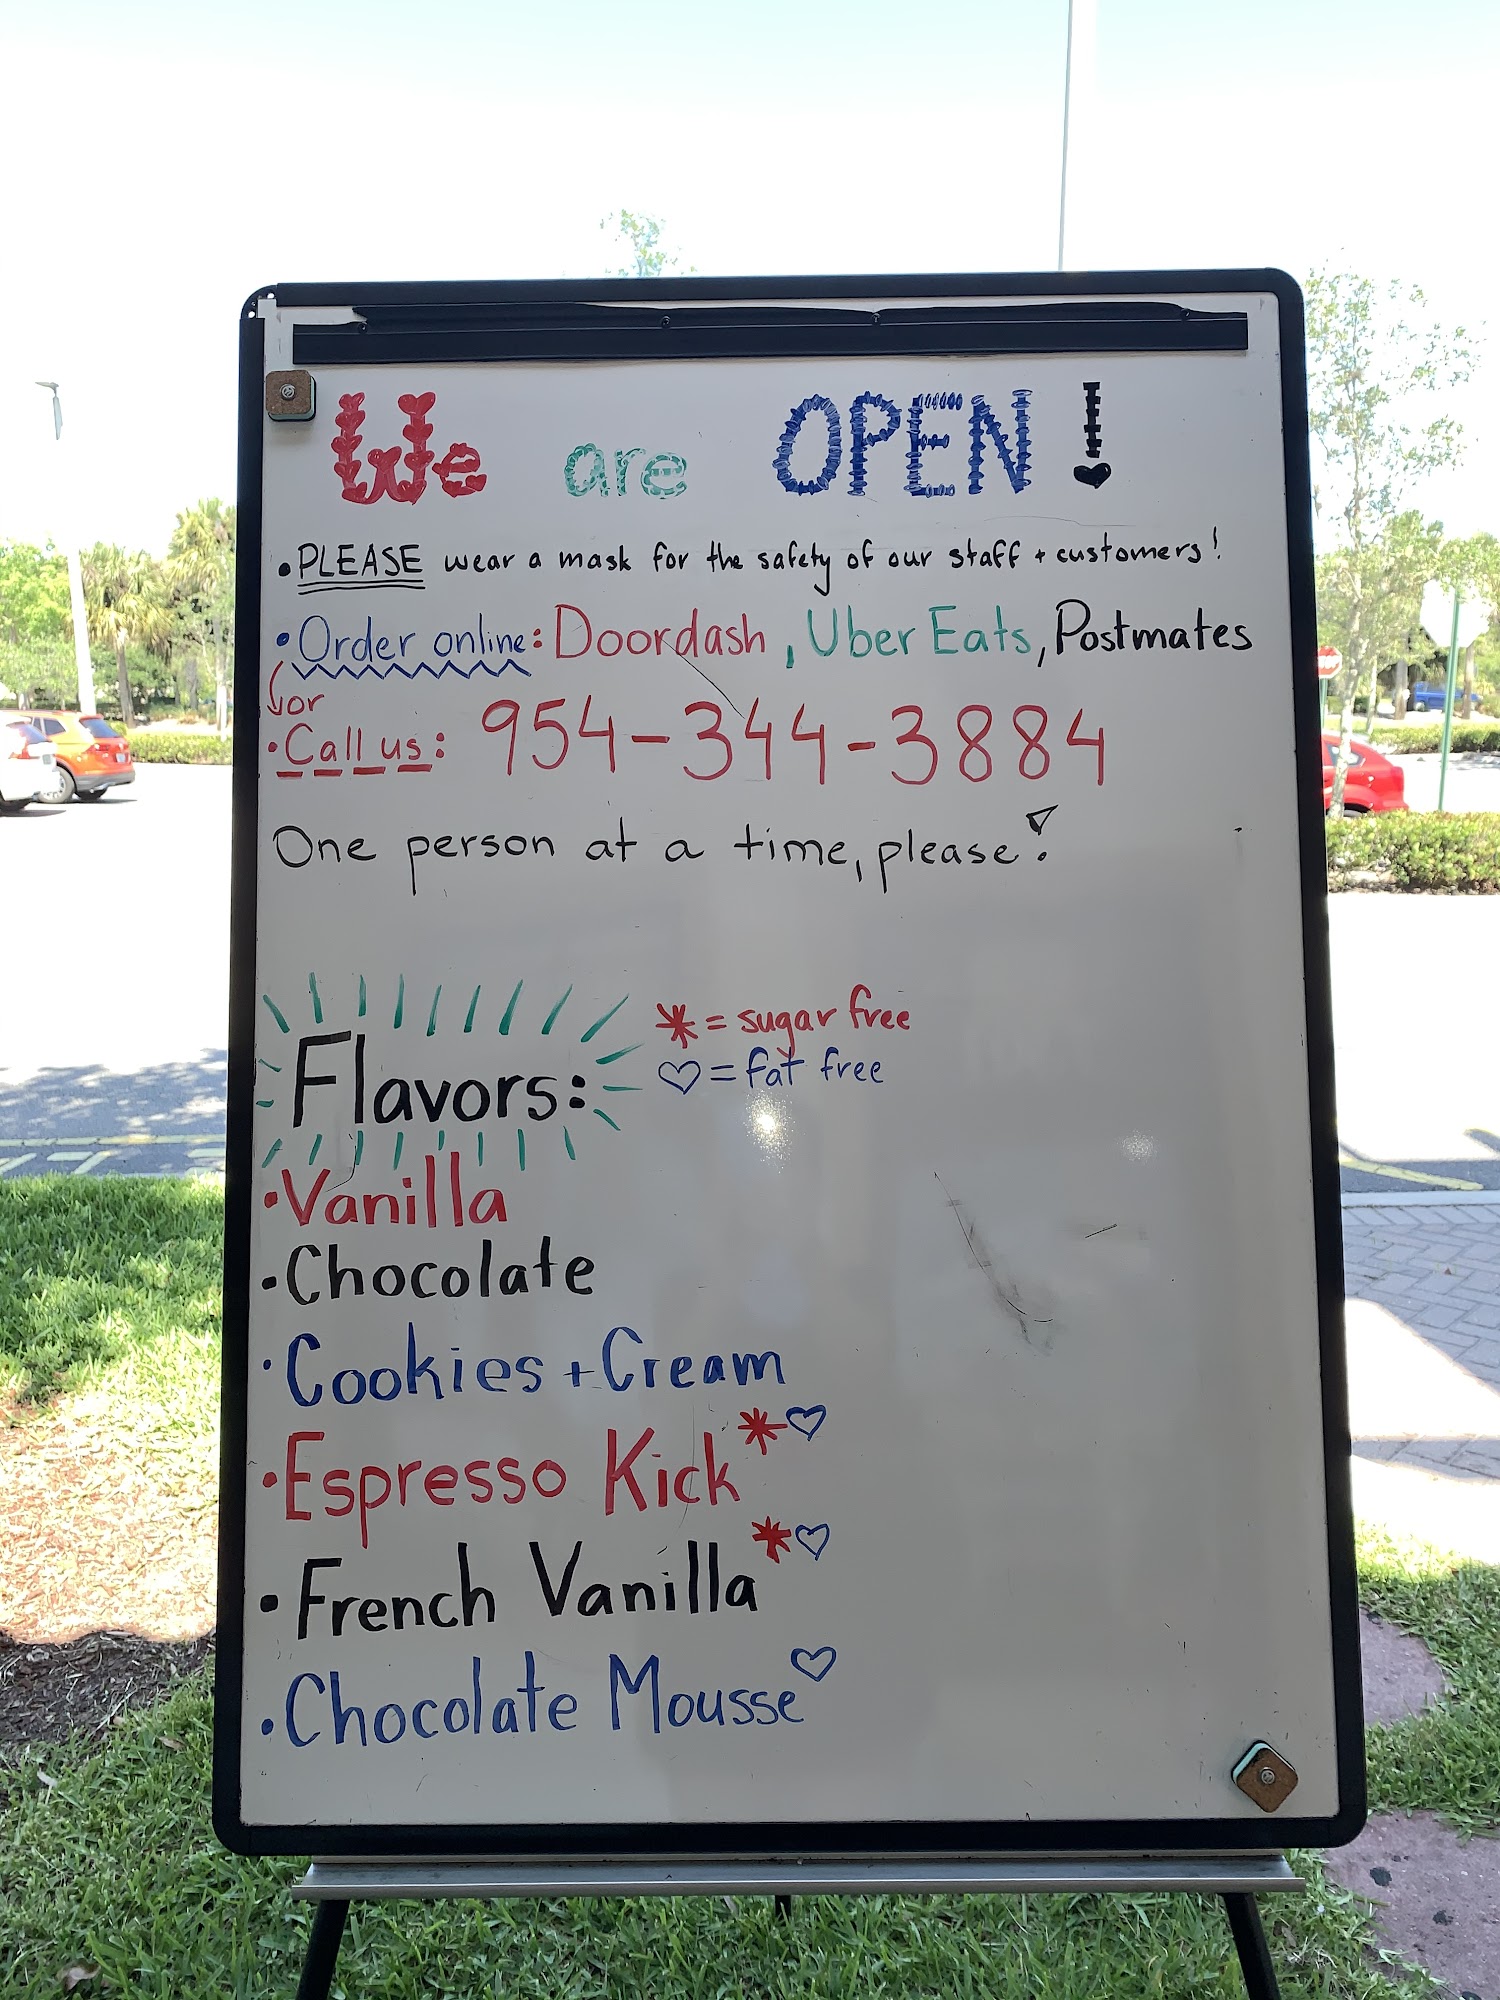 We are OPEN!
• PLEASE wear a mask for the safety of our staff + customers!
• Order online: Doordash, Uber Eats, Postmates
or
• Call us: 954-344-3884
One person at a time, please!
Flavors:
* = sugar free
♡ = fat free
• Vanilla
• Chocolate
• Cookies + Cream
• Espresso Kick *♡
• French Vanilla *♡
• Chocolate Mousse ♡